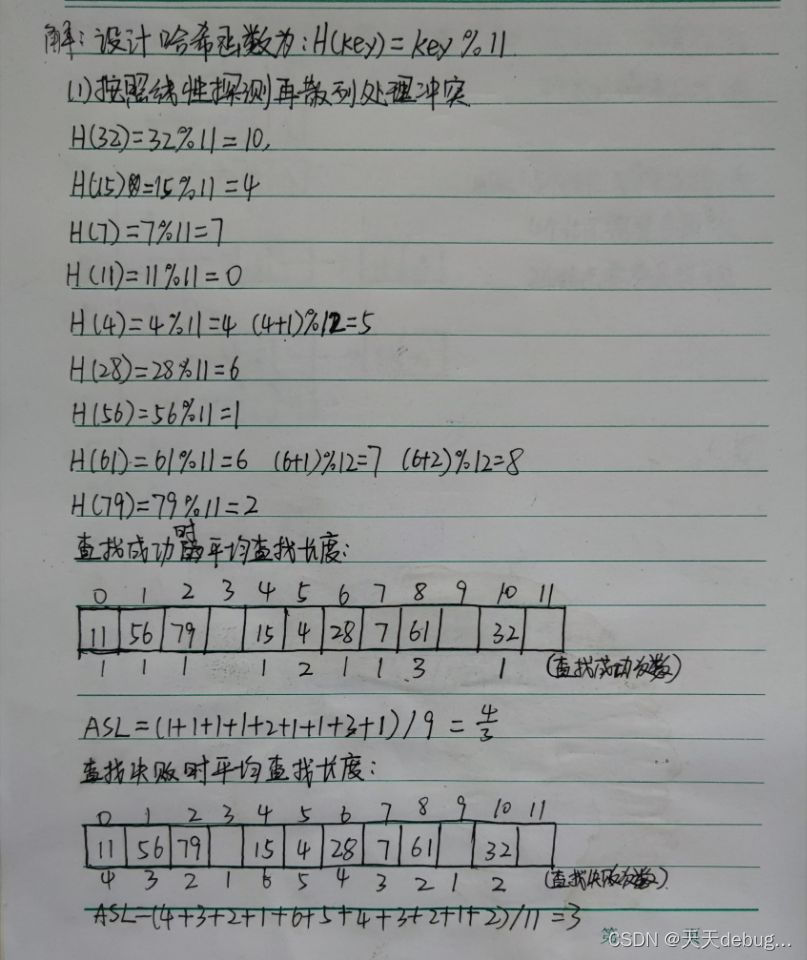 解：设计哈希函数为：H(key) = key % 11
(1)按照线性探测再散列处理冲突
H(32)=32%11=10,
H(15)=15%11=4
H(7)=7%11=7
H(11)=11%11=0
H(4)=4%11=4 (4+1)%12=5
H(28)=28%11=6
H(56)=56%11=1
H(61)=61%11=6 (6+1)%12=7 (6+2)%12=8
H(79)=79%11=2
查找成功时平均查找长度：
0 1 2 3 4 5 6 7 8 9 10 11
11 56 79 15 4 28 7 61 32
1 1 1 1 2 1 1 3 1 (查找成功次数)
ASL=(1+1+1+1+2+1+1+3+1)/9 = 4/3
查找失败时平均查找长度：
0 1 2 3 4 5 6 7 8 9 10 11
11 56 79 15 4 28 7 61 32
4 3 2 1 6 5 4 3 2 1 2 (查找失败次数)
ASL=(4+3+2+1+6+5+4+3+2+1+2)/11=3
第 页
CSDN @天天debug...